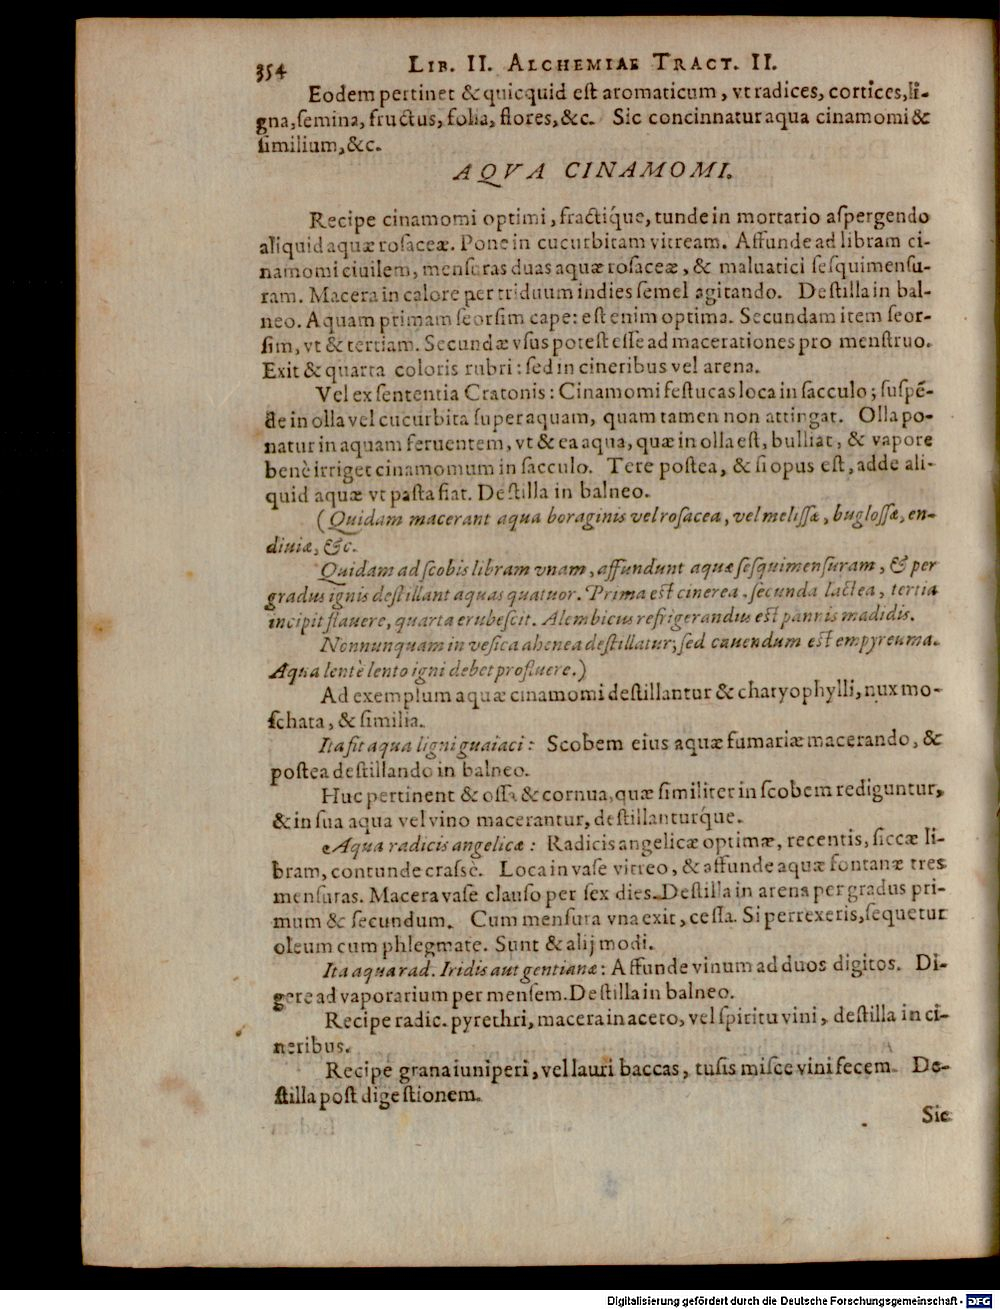 354 LIB. II. ALCHEMIAE TRACT. II.
Eodem pertinet & quicquid eſt aromaticum, vt radices, cortices, li-
gna, ſemina, fructus, folia, flores, &c. Sic concinnatur aqua cinamomi &
ſimilium, &c.
AQVA CINAMOMI.
Recipe cinamomi optimi, fractiq́ue, tunde in mortario aſpergendo
aliquid aquæ roſaceæ. Pone in cucurbitam vitream. Affunde ad libram ci-
namomi ciuilem, menſuras duas aquæ roſaceæ, & maluatici ſeſquimenſu-
ram. Macera in calore per triduum indies ſemel agitando. Deſtilla in bal-
neo. Aquam primam ſeorſim cape: eſt enim optima. Secundam item ſeor-
ſim, vt & tertiam. Secundæ vſus poteſt eſſe ad macerationes pro menſtruo.
Exit & quarta coloris rubri: ſed in cineribus vel arena.
Vel ex ſententia Cratonis: Cinamomi feſtucas loca in ſacculo; ſuſpē-
de in olla vel cucurbita ſuper aquam, quam tamen non attingat. Olla po-
natur in aquam feruentem, vt & ea aqua, quæ in olla eſt, bulliat, & vapore
benè irriget cinamomum in ſacculo. Tere poſtea, & ſi opus eſt, adde ali-
quid aquæ vt paſta fiat. Deſtilla in balneo.
(Quidam macerant aqua boraginis vel roſacea, vel meliſſæ, bugloſſæ, en-
diuiæ, &c.
Quidam ad ſcobis libram vnam, affundunt aquæ ſeſquimenſuram, & per
gradus ignis deſtillant aquas quatuor. Prima eſt cinerea, ſecunda lactea, tertia
incipit flauere, quarta erubeſcit. Alembicus refrigerandus eſt pannis madidis.
Nonnunquam in veſica ahenea deſtillatur; ſed cauendum eſt empyreuma.
Aqua lentè lento igni debet profluere.)
Ad exemplum aquæ cinamomi deſtillantur & charyophylli, nux mo-
ſchata, & ſimilia.
Ita fit aqua ligni guaiaci: Scobem eius aquæ fumariæ macerando, &
poſtea deſtillando in balneo.
Huc pertinent & oſſa & cornua, quæ ſimiliter in ſcobem rediguntur,
& in ſua aqua vel vino macerantur, deſtillanturq́ue.
Aqua radicis angelicæ: Radicis angelicæ optimæ, recentis, ſiccæ li-
bram, contunde craſsè. Loca in vaſe vitreo, & affunde aquæ fontanæ tres
menſuras. Macera vaſe clauſo per ſex dies. Deſtilla in arena per gradus pri-
mum & ſecundum. Cum menſura vna exit, ceſſa. Si perrexeris, ſequetur
oleum cum phlegmate. Sunt & alij modi.
Ita aqua rad. Iridis aut gentianæ: Affunde vinum ad duos digitos. Di-
gere ad vaporarium per menſem. Deſtilla in balneo.
Recipe radic. pyrethri, macera in aceto, vel ſpiritu vini, deſtilla in ci-
neribus.
Recipe grana iuniperi, vel lauri baccas, tuſis miſce vini fecem. De-
ſtilla poſt digeſtionem.
Sic
Digitalisierung gefördert durch die Deutsche Forschungsgemeinschaft - DFG